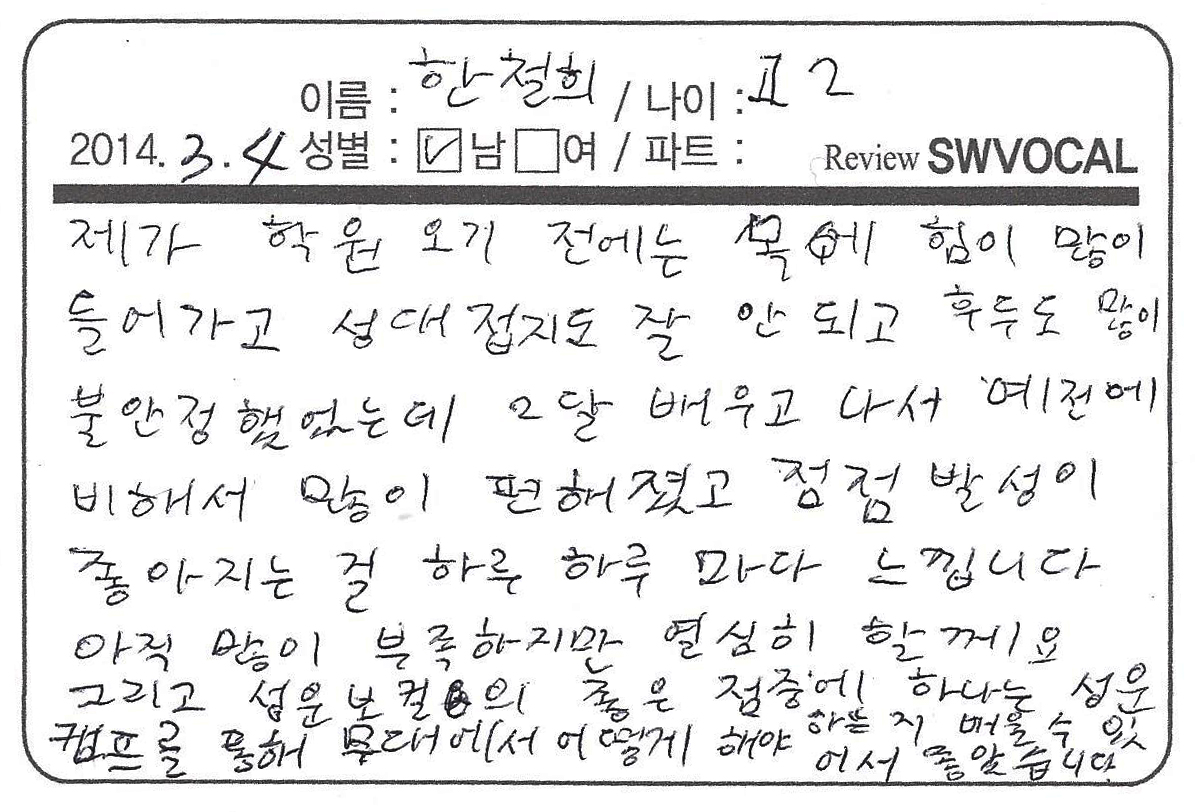 이름 : 한철희 / 나이 : 고2
2014. 3. 4 성별 : ☑남 □여 / 파트 : Review SWVOCAL
제가 학원 오기 전에는 목에 힘이 많이
들어가고 성대접지도 잘 안 되고 후두도 많이
불안정했었는데 2달 배우고 나서 예전에
비해서 많이 편해졌고 점점 발성이
좋아지는 걸 하루 하루 마다 느낍니다
아직 많이 부족하지만 열심히 할께요
그리고 성운보컬의 좋은 점중에 하나는 성운
캠프를 통해 무대에서 어떻게 해야 하는지 배울 수 있
어서 좋았습니다